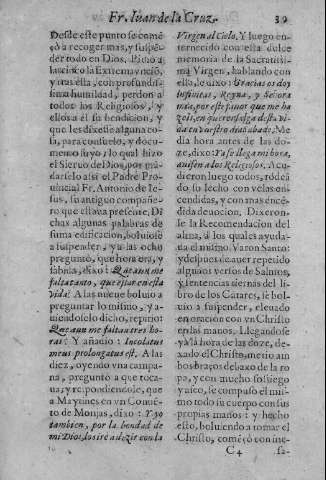 Fr. Iuan de la Cruz. 39
Desde este punto se comẽ
çò a recoger mas, y suspẽ-
der todo en Dios. Pidiò a
la recamara la Extremavncion,
y tras esta, con profundis-
sima humildad, perdon a
todos los Religiosos, y
ellos a èl su bendicion, y
que les dixesse alguna co-
sa, para consuelo, y docu-
mento suyo; lo qual hizo
el Siervo de Dios, por mã-
darselo assi el Padre Pro-
uincial Fr. Antonio de Ie-
sus, su antiguo compañe-
ro que estaua presente. Di
chas algunas palabras de
suma edificacion, boluiose
a suspender, y a las ocho
preguntò, que hora era, y
sabida, dixo: Que aun me
falta tanto, que estar en esta
vida! A las nueue boluio a
preguntar lo mismo, y a-
uiendoselo dicho, repitiò:
Que aun me faltan tres ho-
ras! Y añadio: Incolatus
meus prolongatus est. A las
diez, oyendo vna campa-
na, preguntò a que toca-
ua; y respondiendole, que
a Maytines en vn Conuẽ-
to de Monjas, dixo: Y yo
tambien, por la bondad de
mi Dios, los irè a dezir con la
Virgen al Cielo. Y luego en-
ternecido con esta dulce
memoria de la Sacratissi-
ma Virgen, hablando con
ella, le dixo: Gracias os doy
infinitas, Reyna, y Señora
mia, por este fauor que me ha
zeis, en querer salga desta vi-
da en vuestro dia sabado. Me
dia hora antes de las do-
ze, dixo: Ya se llega mi hora,
auisen a los Religiosos. Acu-
dieron luego todos, rodeã
do su lecho con velas en-
cendidas, y con ansi encẽ-
dida deuocion. Dixeron-
le la Recomendacion del
alma, a los quales ayuda-
ua el mismo Varon Santo:
y despues de auer repetido
algunos versos de Salmos,
y sentencias tiernas del li-
bro de los Cantares, se bol-
uio a suspender, eleuado
en oracion con vn Christo
en las manos. Llegandose
ya la hora de las doze, de-
xado el Christo, metio am
bos braços debaxo de la ro
pa, y con mucho sossiego
y aseo, se compuso el mis-
mo todo su cuerpo con sus
propias manos: y hecho
esto, boluiendo a tomar el
Christo, començò con ine-
C 4 fa-